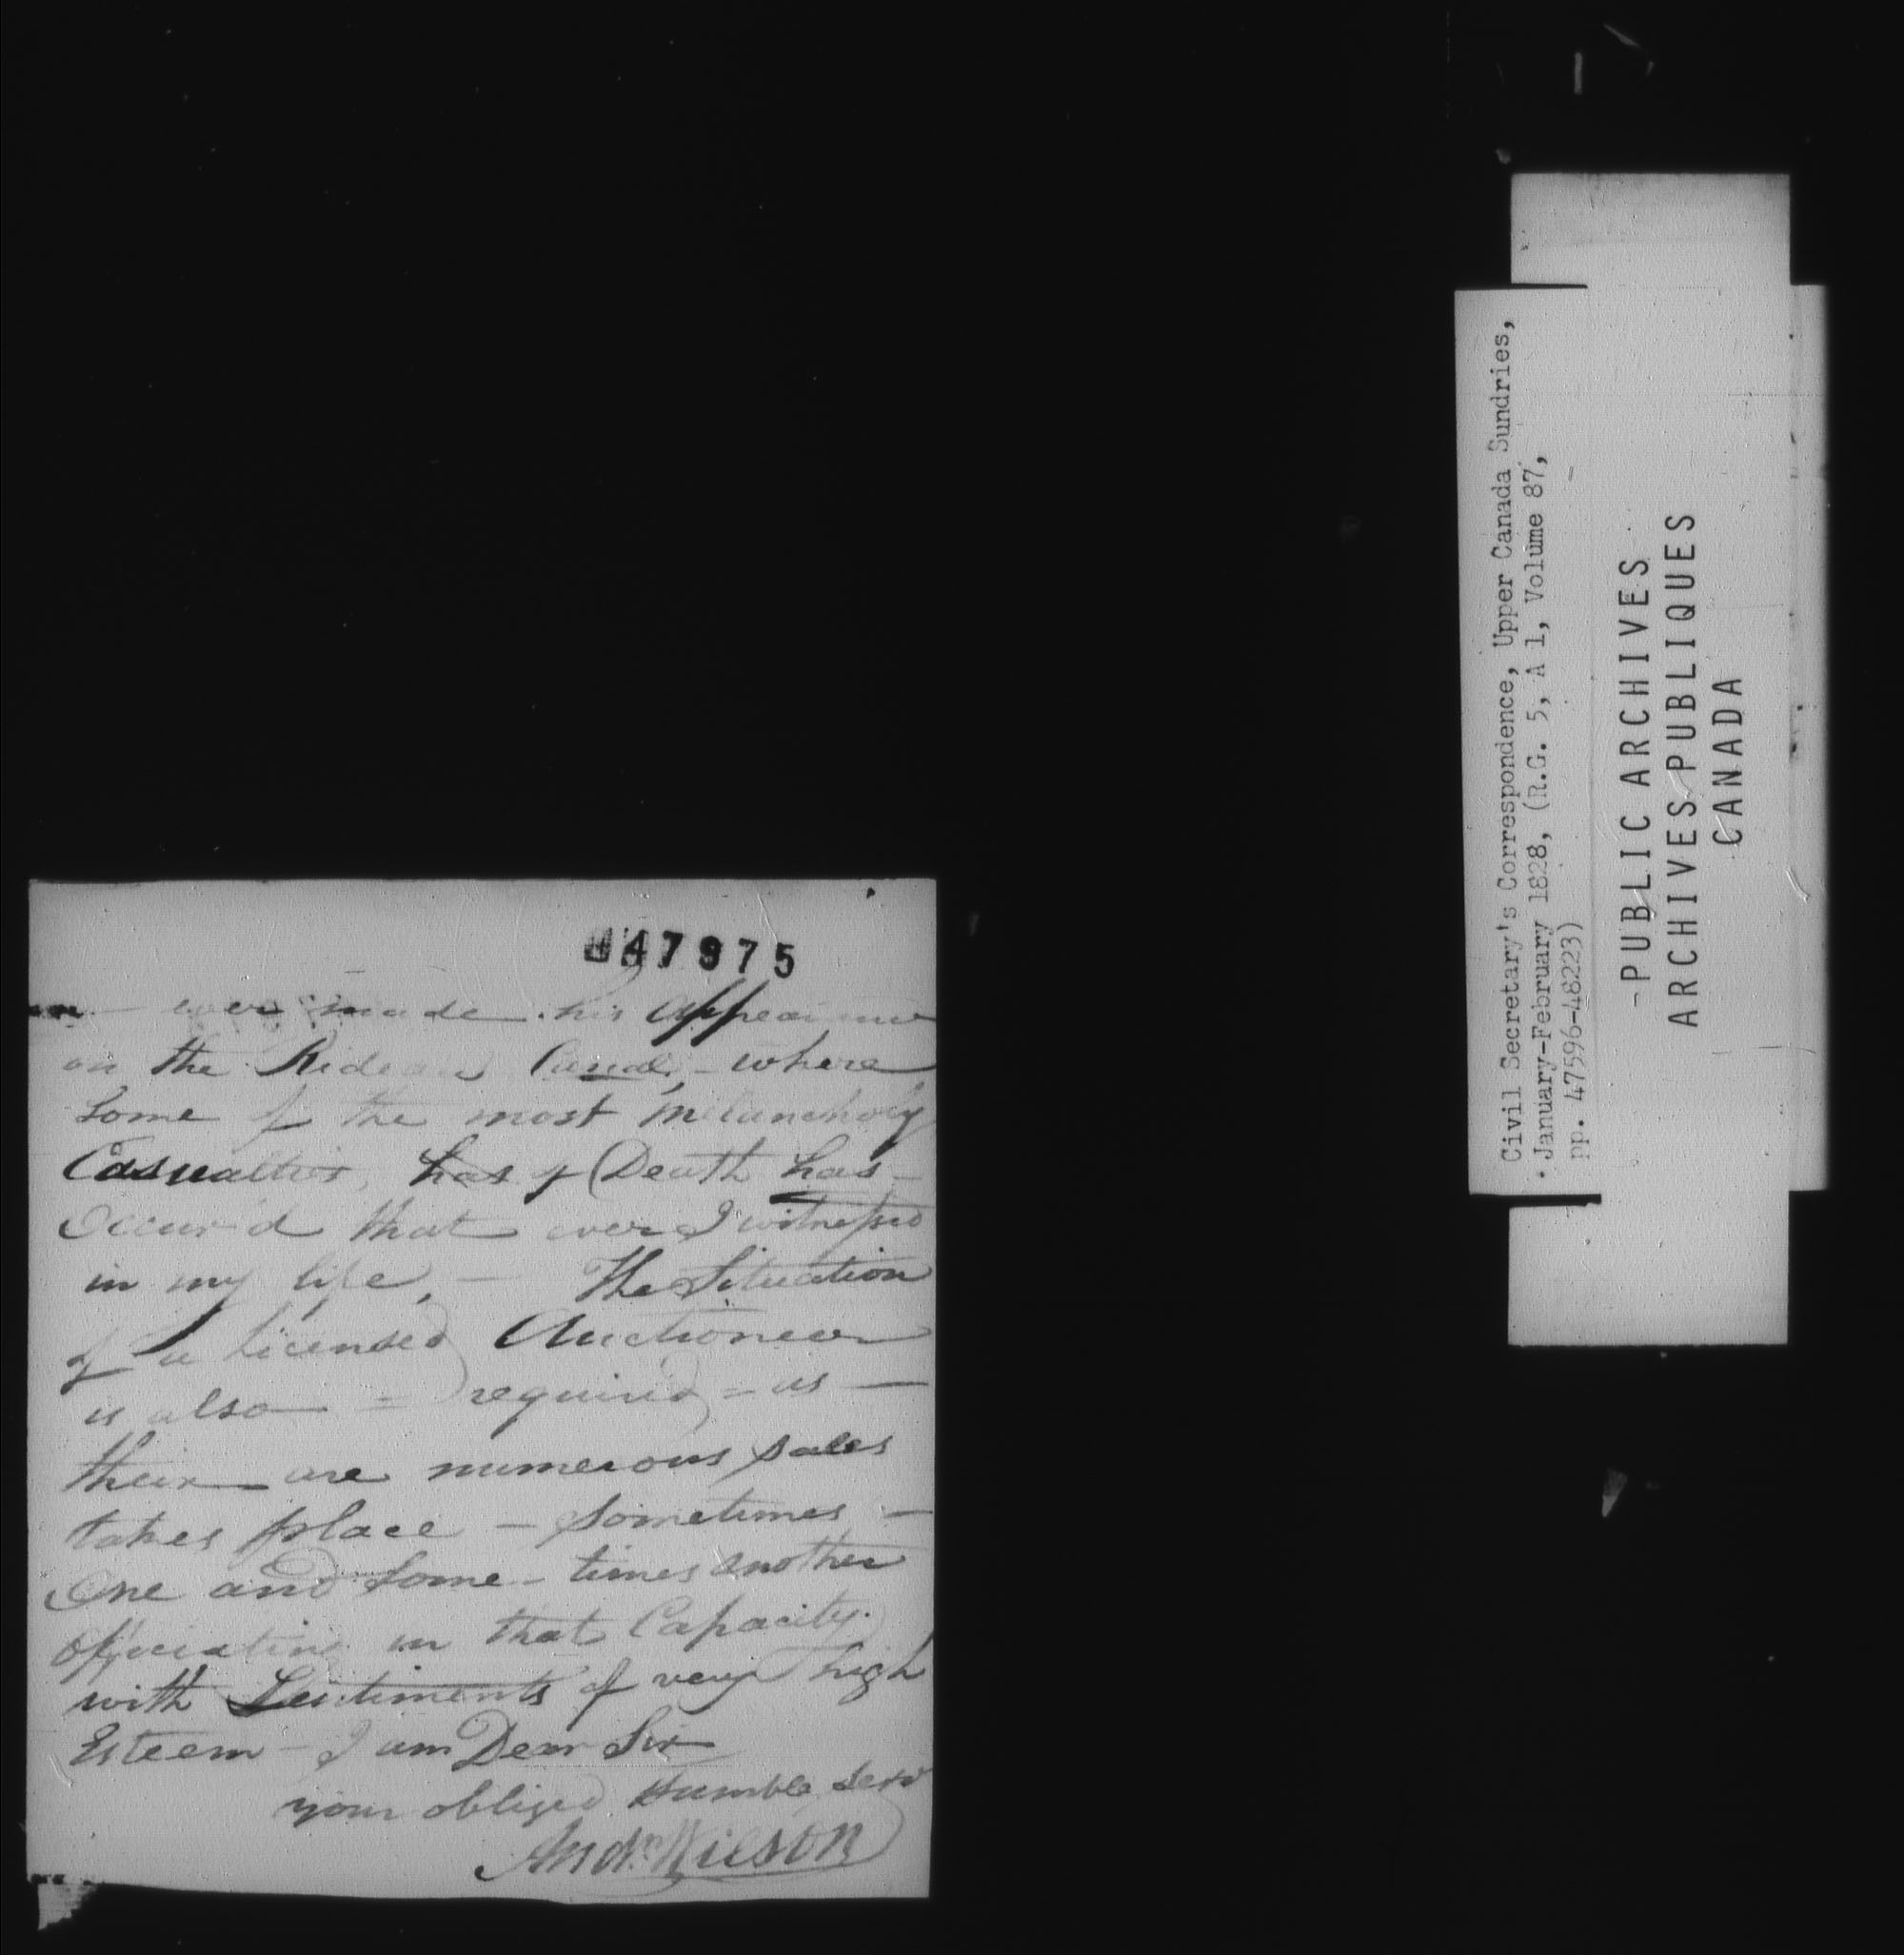 47975
ever made his appearance
on the Rideau Canal, - where
some of the most melancholy
Casualties, has of Death has -
Occur'd that ever I witnessed
in my life, - The Situation
of a Licensed Auctioneer
is also = required = as -
their are numerous sales
takes place - sometimes -
One and some - times another
officiating in that Capacity.
with Sentiments of very high
Esteem - I am Dear Sir
your obliged Humble Serv
Andw Wilson
Civil Secretary's Correspondence, Upper Canada Sundries,
January-February 1828, (R.G. 5, A 1, Volume 87,
pp. 47596-48223)
PUBLIC ARCHIVES
ARCHIVES PUBLIQUES
CANADA